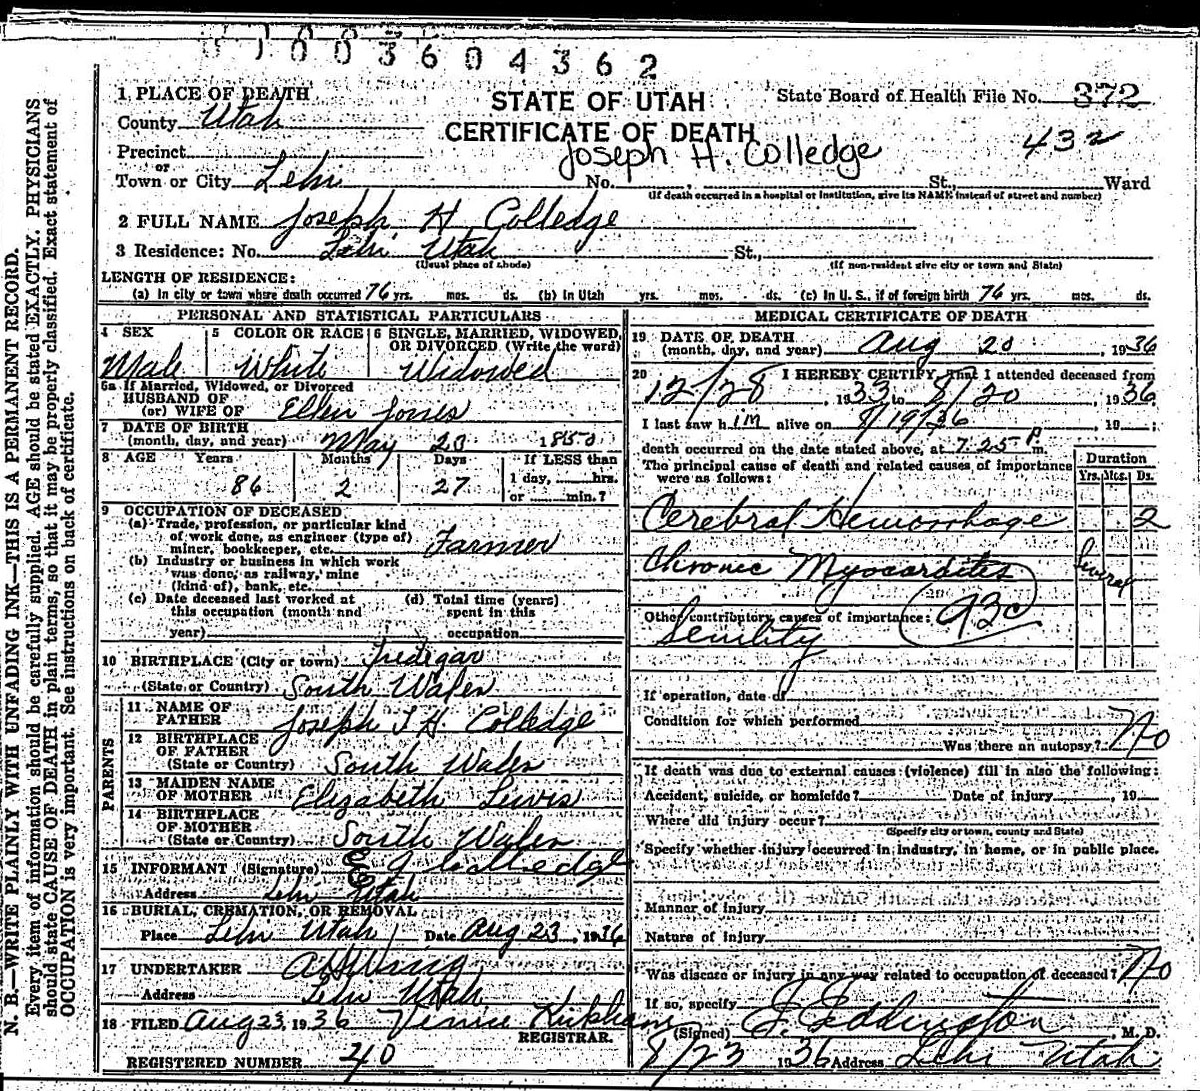 1003604362
1 PLACE OF DEATH
STATE OF UTAH
State Board of Health File No. 372
County Utah
CERTIFICATE OF DEATH
432
Precinct
Joseph H. Colledge
or
Town or City Lehi No. , St., Ward
(If death occurred in a hospital or institution, give its NAME instead of street and number)
2 FULL NAME Joseph H Colledge
3 Residence: No. Lehi Utah St.,
(Usual place of abode) (If non-resident give city or town and State)
LENGTH OF RESIDENCE:
(a) In city or town where death occurred 76 yrs. mos. ds. (b) In Utah yrs. mos. ds. (c) In U. S., if of foreign birth 76 yrs. mos. ds.
PERSONAL AND STATISTICAL PARTICULARS
4 SEX Male
5 COLOR OR RACE White
6 SINGLE, MARRIED, WIDOWED, OR DIVORCED (Write the word) Widowed
6a If Married, Widowed, or Divorced
HUSBAND OF
(or) WIFE OF Ellen Jones
7 DATE OF BIRTH
(month, day, and year) May 23 1850
8 AGE Years 86 Months 2 Days 27 If LESS than 1 day, hrs. or min.?
9 OCCUPATION OF DECEASED
(a) Trade, profession, or particular kind
of work done, as engineer (type of)
miner, bookkeeper, etc. Farmer
(b) Industry or business in which work
was done, as railway, mine
(kind of), bank, etc.
(c) Date deceased last worked at
this occupation (month and
year)
(d) Total time (years)
spent in this
occupation
10 BIRTHPLACE (City or town) Tredegar
(State or Country) South Wales
PARENTS
11 NAME OF
FATHER Joseph T H Colledge
12 BIRTHPLACE
OF FATHER
(State or Country) South Wales
13 MAIDEN NAME
OF MOTHER Elizabeth Lewis
14 BIRTHPLACE
OF MOTHER
(State or Country) South Wales
15 INFORMANT (Signature) E J Colledge
Address Lehi Utah
16 BURIAL, CREMATION, OR REMOVAL
Place Lehi Utah Date Aug 23, 1936
17 UNDERTAKER
Address Lehi Utah
18 FILED Aug 23, 1936 Kirkham
REGISTRAR.
REGISTERED NUMBER 40
MEDICAL CERTIFICATE OF DEATH
19 DATE OF DEATH
(month, day, and year) Aug 20, 1936
20 I HEREBY CERTIFY, That I attended deceased from
12/28, 1933 to 8/20, 1936
I last saw h im alive on 8/19/36, 19 ;
death occurred on the date stated above, at 7:25 P m.
The principal cause of death and related causes of importance
were as follows:
Duration
Yrs. Mos. Ds.
Cerebral Hemorrhage 2
Chronic Myocarditis Several
93c
Other contributory causes of importance:
Senility
If operation, date of
Condition for which performed
Was there an autopsy? No
If death was due to external causes (violence) fill in also the following:
Accident, suicide, or homicide? Date of injury , 19
Where did injury occur?
(Specify city or town, county and State)
Specify whether injury occurred in industry, in home, or in public place.
Manner of injury
Nature of injury
Was disease or injury in any way related to occupation of deceased? No
If so, specify
(Signed) Eddington, M. D.
8/23 1936 Address Lehi Utah
N. B.—WRITE PLAINLY WITH UNFADING INK—THIS IS A PERMANENT RECORD.
Every item of information should be carefully supplied. AGE should be stated EXACTLY. PHYSICIANS
should state CAUSE OF DEATH in plain terms, so that it may be properly classified. Exact statement of
OCCUPATION is very important. See instructions on back of certificate.